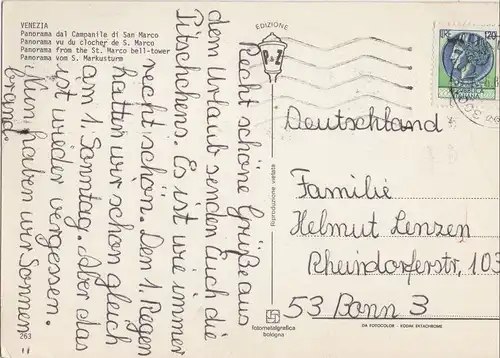 VENEZIA
Panorama dal Campanile di San Marco
Panorama vu du clocher de S. Marco
Panorama from the St. Marco bell-tower
Panorama vom S. Markusturm
Recht schöne Grüße aus
dem Urlaub senden Euch die
Pitschchens. Es ist wie immer
recht schön. Den 1. Regen
hatten wir schon gleich
am 1. Sonntag. Aber das
ist wieder vergessen.
Nun haben wir Sonnen
brand.
263
EDIZIONE
Riproduzione vietata
fotometalgrafica
bologna
LIRE 120
Deutschland
Familie
Helmut Lenzen
Rheindorferstr, 103
53 Bonn 3
DA FOTOCOLOR - KODAK EKTACHROME